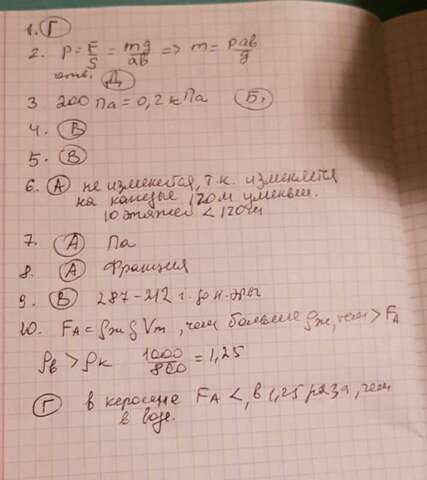 1. Г
2. P = F/S = mg/ab => m = pab/g
отв. Д
3 200 Па = 0,2 кПа Б.
4. В
5. В
6. А не изменется, т.к. изменяется
на каждые 120 м уменьш.
10 этажей < 120 м
7. А Па
8. А Франция
9. В 287-212 г. до н. эры
10. FA = ρж g Vт, чем больше ρж, тем > FA
ρв > ρк 1000/800 = 1,25
Г в керосине FA <, в 1,25 раза, чем
в воде.